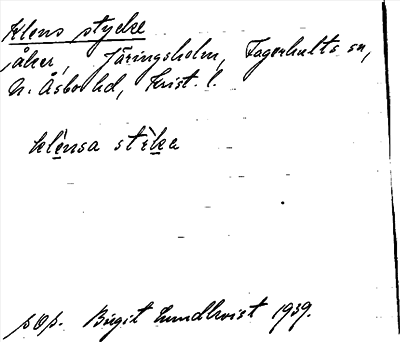 Klens stycke
åker, Järingsholm, Fagerhults sn,
N. Åsbo hd, Krist. l.
klènsa stỳka
pOp. Birgit Lundkvist 1939.